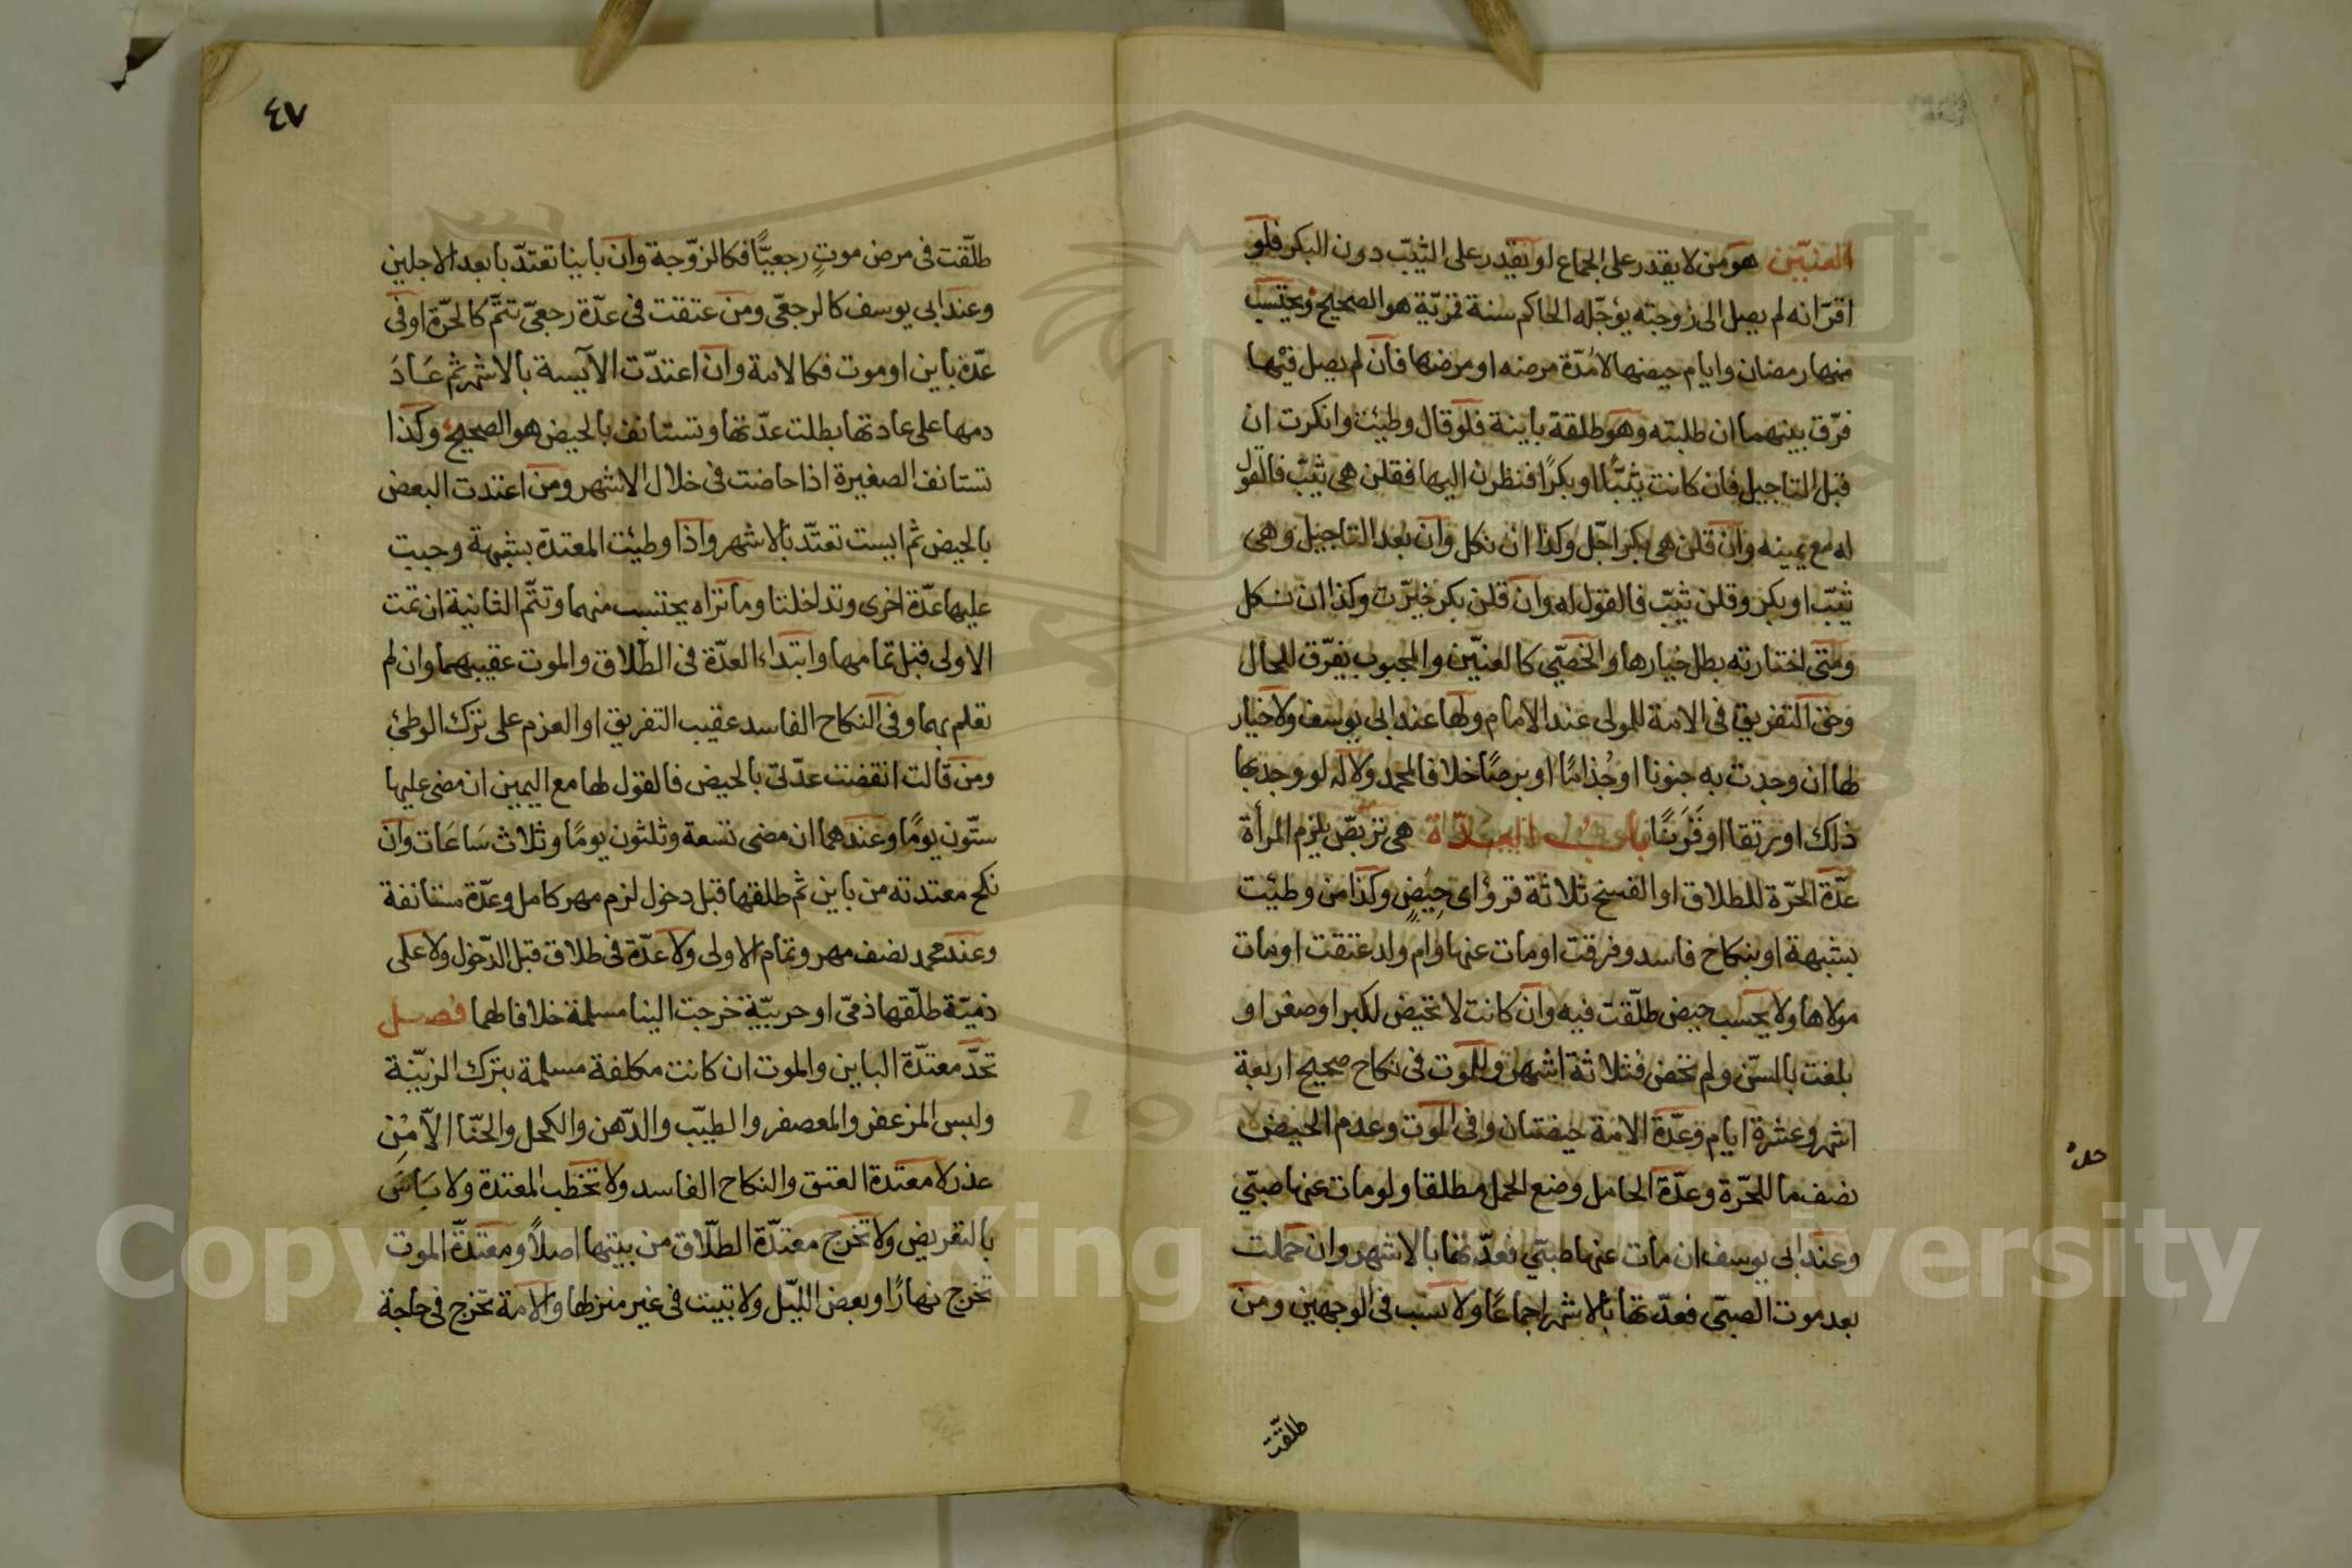 العنيّن هو من لا يقدر على الجماع او يقدر على الثيّب دون البكر فلو
اقرّ انه لم يصل الى زوجته يؤجّله الحاكم سنة قمريّة هو الصحيح ويحتسب
منها رمضان وايام حيضها لا مُدّة مرضه او مرضها فان لم يصل فيْها
فرّق بينهما ان طلبته وهو طلقة باينة فلو قال وطيئت وانكرت ان
قبل التاجيل فان كانت ثيّبًا او بكرًا فنظرن اليها فقلن هى ثيّب فالقول
له مع يمينه وان قلن هى بكر اجّل وكذا ان نكل وان بعد التاجيل وهى
ثيّب او بكر وقلن ثيّب فالقول له وان قلن بكر خيّرت وكذا ان نكل
ومتى اختارته بطل خيارها والخصّى كالعنيّن والمجبوب يفرّق للحال
وحق التفريق فى الامة للمولى عند الامام ولها عند ابى يوسف ولا خيار
لها ان وجدت به جنونا او جُذامًا او برصًا خلافا لمحمد ولا له لو وجد بها
ذلك او رتقا او قَرَنًا باب العدّة هى تربّص يلزم المرأة
عدّة الحرّة للطلاق او الفسخ ثلاثة قرؤ اى حِيَضٍ وكذا من وطيئت
بشبهة او بنكاح فاسد وفرقت او مات عنها وام ولد عتقت او مات
مولاها ولا يحسب حيض طلّقت فيه وان كانت لا تحيض لكبر او صغر او
بلغت بالسّن ولم تحض فثلاثة اشهر وللموت فى نكاح صحيح اربعة
اشهر وعشرة ايام وعدّة الامة حيضتان وفى الموت وعدم الحيض
نصف ما للحرّة وعدّة الحامل وضع الحمل مطلقا ولو مات عنها صبىّ
وعند ابى يوسف ان مات عنها صبىّ فعدّتها بالاشهر وان حملت
بعد موت الصبىّ فعدّتها بالاشهر اجماعًا ولا نسب فى الوجهين ومن
طلّقت
٤٧
طلّقت فى مرض موتٍ رجعيًّا فكالزوّجة وان باينا تعتدّ بابعد الاجلين
وعند ابى يوسف كالرجعّى ومن عتقت فى عدّة رجعىّ تتمّ كالحرّة او فى
عدّة باين او موت فكالامة وان اعتدّت الآيسة بالاشهر ثم عَادَ
دمها على عادتها بطلت عدّتها وتستانف بالحيض هو الصحيح وكذا
تستانف الصغيرة اذا حاضت فى خلال الاشهر ومن اعتدت البعض
بالحيض ثم ايست تعتدّ بالاشهر واذا وطيئت المعتدة بشبهة وجبت
عليها عدّة اخرى وتداخلتا وما تراه يحتسب منهما وتتمّ الثانية ان تمت
الاولى قبل تمامها وابتداء العدّة فى الطّلاق والموت عقيبهما وان لم
تعلم بهما وفى النكاح الفاسد عقيب التفريق او العزم على ترك الوطئ
ومن قالت انقضت عدّتى بالحيض فالقول لها مع اليمين ان مضى عليها
ستّون يومًا وعندهما ان مضى تسعة وثلثون يومًا وثلاث سَاعَات وان
نكح معتدته من باين ثم طلقها قبل دخول لزم مهر كامل وعدّة مستانفة
وعند محمد نصف مهر وتمام الاولى ولا عدّة فى طلاق قبل الدّخول ولا على
ذميّة طلّقها ذمّى او حربيّة خرجت الينا مسلمة خلافا لهما فصل
تحدّ معتدّة الباين والموت ان كانت مكلفة مسلمة بترك الزيّنة
ولبس المزعفر والمعصفر والطيّب والدّهن والكحل والحنّا الّا مْن
عذر لا معتدة العتق والنكاح الفاسد ولا تخطب المعتدة ولا بَاسَ
بالتعريض ولا تخرج معتدّة الطّلاق من بيتها اصلًا ومعتدّة الموت
تخرج نهارًا وبعض الليّل ولا تبيت فى غير منزلها والامة تخرج فى حاجة
Copyright © King Saud University